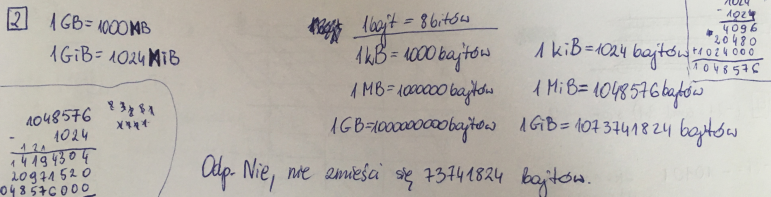 2
1GB=1000MB
1GiB=1024MiB
1bajt = 8bitów
1kB=1000bajtów
1MB=1000000bajtów
1GB=1000000000bajtów
1kiB=1024 bajtów
1MiB=1048576bajtów
1GiB=1073741824 bajtów
1024
- 1024
4096
20480
+1024000
1048576
1048576
- 1024
1 21
4194304
20971520
048576000
Odp. Nie, nie zmieści się 73741824 bajtów.